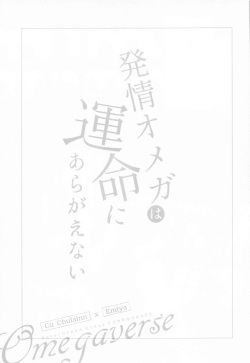 発情オメガは
運命に
あらがえない
Cú Chulainn x Emiya
Omegaverse